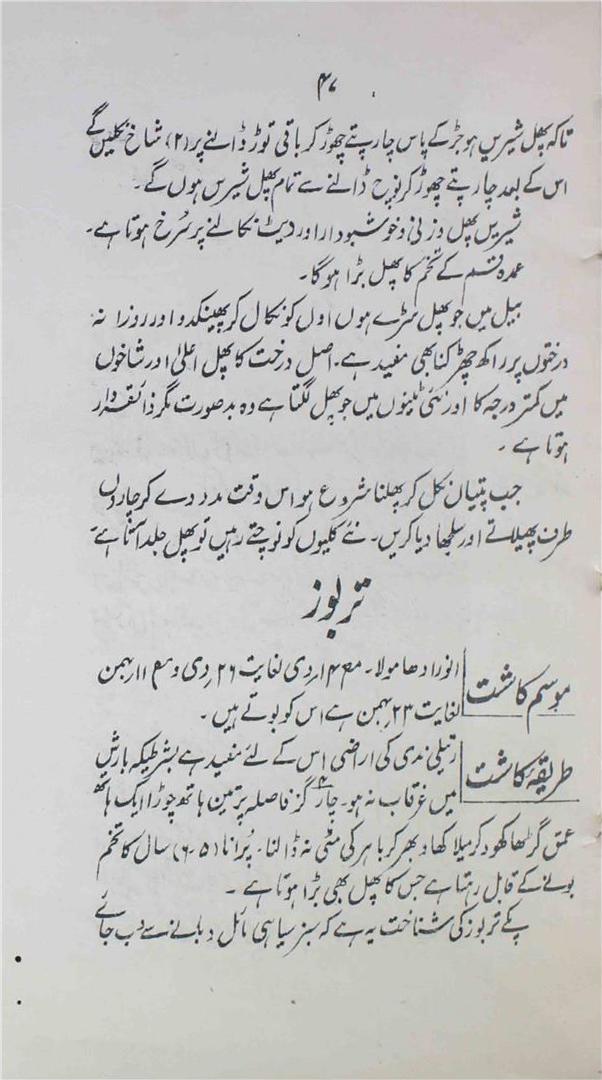 ۴۷
تاکہ پھل شیریں ہو جڑ کے پاس چار پتے چھوڑ کر باقی توڑ ڈالنے پر (۲) شاخ نکلیں گے
اس کے بعد چار پتے چھوڑ کر نوچ ڈالنے سے تمام پھل شیریں ہوں گے۔
شیریں پھل وزنی و خوشبودار اور دیٹ نکالنے پر سُرخ ہوتا ہے۔
عمدہ قسم کے تخم کا پھل بڑا ہوگا۔
بیل میں جو پھل سڑے ہوں اوں کو نکال کر پھینکدو اور روزانہ
درختوں پر راکھ چھڑکنا بھی مفید ہے۔ اصل درخت کا پھل اعلیٰ اور شاخوں
میں کمتر درجہ کا اور نئی ٹہنیوں میں جو پھل لگتا ہے وہ بدصورت مگر ذائقہ دار
ہوتا ہے۔
جب پتیاں نکل کر پھلنا شروع ہو اس وقت مدد دے کر چاروں
طرف پھیلاتے اور سلجھا دیا کریں۔ نئے کلیوں کو نوچتے رہیں تو پھل جلد آتا ہے۔
تربوز
موسم کاشت
انورادھا مولا۔ مع ۱۴؍دی لغایت ۲۶؍دی و مع ۱۱؍بہمن
لغایت ۲۳؍بہمن ہے اس کو بوتے ہیں۔
طریقۂ کاشت
رتیلی ندی کی اراضی اس کے لئے مفید ہے بشرطیکہ بارش
میں غرقاب نہ ہو۔ چار ۴ گز فاصلہ پر تین ہاتھ چوڑا ایک ہاتھ
عمق گڑھا کھود کر میلا کھاد بھر کر باہر کی مٹی نہ ڈالنا۔ پُرانا (۵۔۶) سال کا تخم
بونے کے قابل رہتا ہے جس کا پھل بھی بڑا ہوتا ہے۔
پکے تربوز کی شناخت یہ ہے کہ سبز سیاہی مائل دبانے سے دب جائے